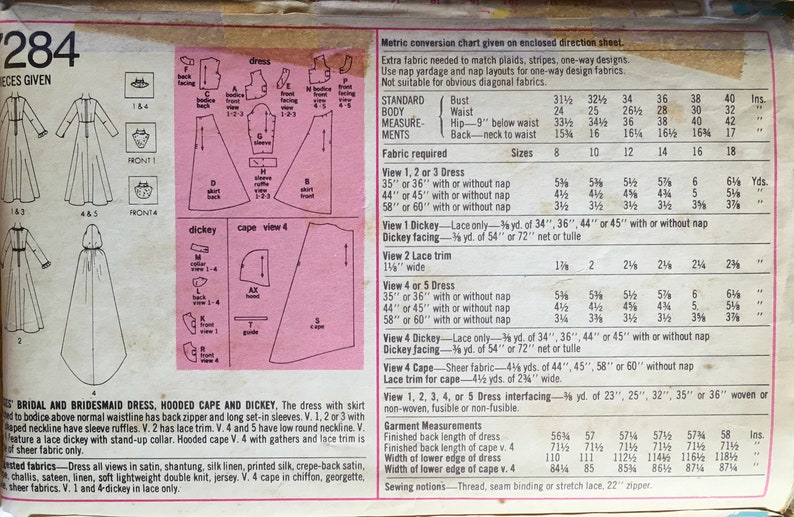 7284
ECES GIVEN
1 & 4
FRONT 1
FRONT 4
1 & 3
4 & 5
2
4
dress
F back facing
C bodice back
A bodice front 1-2-3
E front facing 1-2-3
N bodice front 4-5
P front facing 4-5
G sleeve
H sleeve ruffle view 1-2-3
D skirt back
B skirt front
dickey
M collar view 1-4
L back view 1-4
K front view 1
R front view 4
cape view 4
AX hood
T guide
S cape
BRIDAL AND BRIDESMAID DRESS, HOODED CAPE AND DICKEY, The dress with skirt
to bodice above normal waistline has back zipper and long set-in sleeves. V. 1, 2 or 3 with
neckline have sleeve ruffles. V. 2 has lace trim. V. 4 and 5 have low round neckline. V.
feature a lace dickey with stand-up collar. Hooded cape V. 4 with gathers and lace trim is
of sheer fabric only.
fabrics—Dress all views in satin, shantung, silk linen, printed silk, crepe-back satin,
challis, sateen, linen, soft lightweight double knit, jersey. V. 4 cape in chiffon, georgette,
sheer fabrics. V. 1 and 4-dickey in lace only.
Metric conversion chart given on enclosed direction sheet.
Extra fabric needed to match plaids, stripes, one-way designs.
Use nap yardage and nap layouts for one-way design fabrics.
Not suitable for obvious diagonal fabrics.
STANDARD Bust 31½ 32½ 34 36 38 40 Ins.
BODY Waist 24 25 26½ 28 30 32 "
MEASURE- Hip—9" below waist 33½ 34½ 36 38 40 42 "
MENTS Back—neck to waist 15¾ 16 16¼ 16½ 16¾ 17 "
Fabric required Sizes 8 10 12 14 16 18
View 1, 2 or 3 Dress
35" or 36" with or without nap 5⅜ 5⅜ 5½ 5⅞ 6 6⅛ Yds.
44" or 45" with or without nap 4½ 4½ 4⅝ 4¾ 5 5⅛ "
58" or 60" with or without nap 3½ 3½ 3½ 3½ 3⅝ 3⅞ "
View 1 Dickey—Lace only—⅜ yd. of 34", 36", 44" or 45" with or without nap
Dickey facing—⅜ yd. of 54" or 72" net or tulle
View 2 Lace trim
1⅛" wide 1⅞ 2 2⅛ 2⅛ 2¼ 2⅜ "
View 4 or 5 Dress
35" or 36" with or without nap 5⅜ 5⅜ 5½ 5⅞ 6 6⅛ "
44" or 45" with or without nap 4½ 4½ 4⅝ 4¾ 5. 5⅛ "
58" or 60" with or without nap 3¼ 3⅜ 3½ 3½ 3⅝ 3⅞ "
View 4 Dickey—Lace only—⅜ yd. of 34", 36", 44" or 45" with or without nap
Dickey facing—⅜ yd. of 54" or 72" net or tulle
View 4 Cape—Sheer fabric—4⅛ yds. of 44", 45", 58" or 60" without nap
Lace trim for cape—4½ yds. of 2¾" wide.
View 1, 2, 3, 4, or 5 Dress interfacing—⅜ yd. of 23", 25", 32", 35" or 36" woven or
non-woven, fusible or non-fusible.
Garment Measurements
Finished back length of dress 56¾ 57 57¼ 57½ 57¾ 58 Ins.
Finished back length of cape v. 4 71½ 71½ 71½ 71½ 71½ 71½ "
Width of lower edge of dress 110 111 112½ 114½ 116½ 118½ "
Width of lower edge of cape v. 4 84¼ 85 85¾ 86½ 87¼ 87¼ "
Sewing notions—Thread, seam binding or stretch lace, 22" zipper.